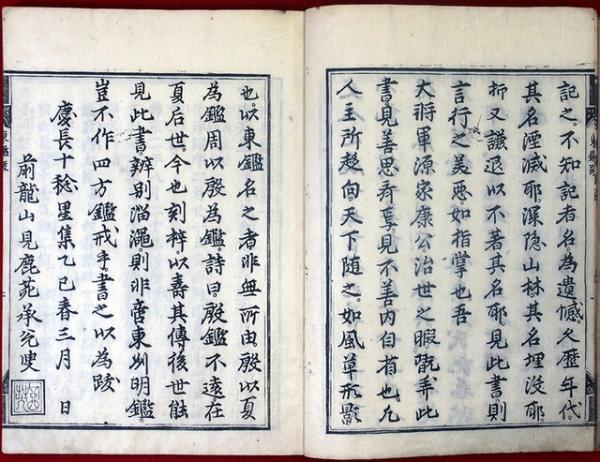 記之。不知記者名。為遺憾。久歷年代。
其名湮滅耶。深隱山林其名埋沒耶。
抑又謙退以不著其名耶。見此書。則
言行之美惡如指掌也。吾
大將軍源家康公治世之暇。翫弄此
書。見善思齊焉。見不善內自省也。凡
人主所趍向。天下隨之。如風草形影
也。以東鑑名之者非無所由。殷以夏
為鑑。周以殷為鑑。詩曰。殷鑑不遠。在
夏后世。今也刻梓以壽其傳。後世能
見此書辨別淄澠。則非啻東州明鑑。
豈不作四方鑑戒乎。書之以為跋
慶長十稔星集乙巳春三月 日
前龍山見鹿苑承兌叟